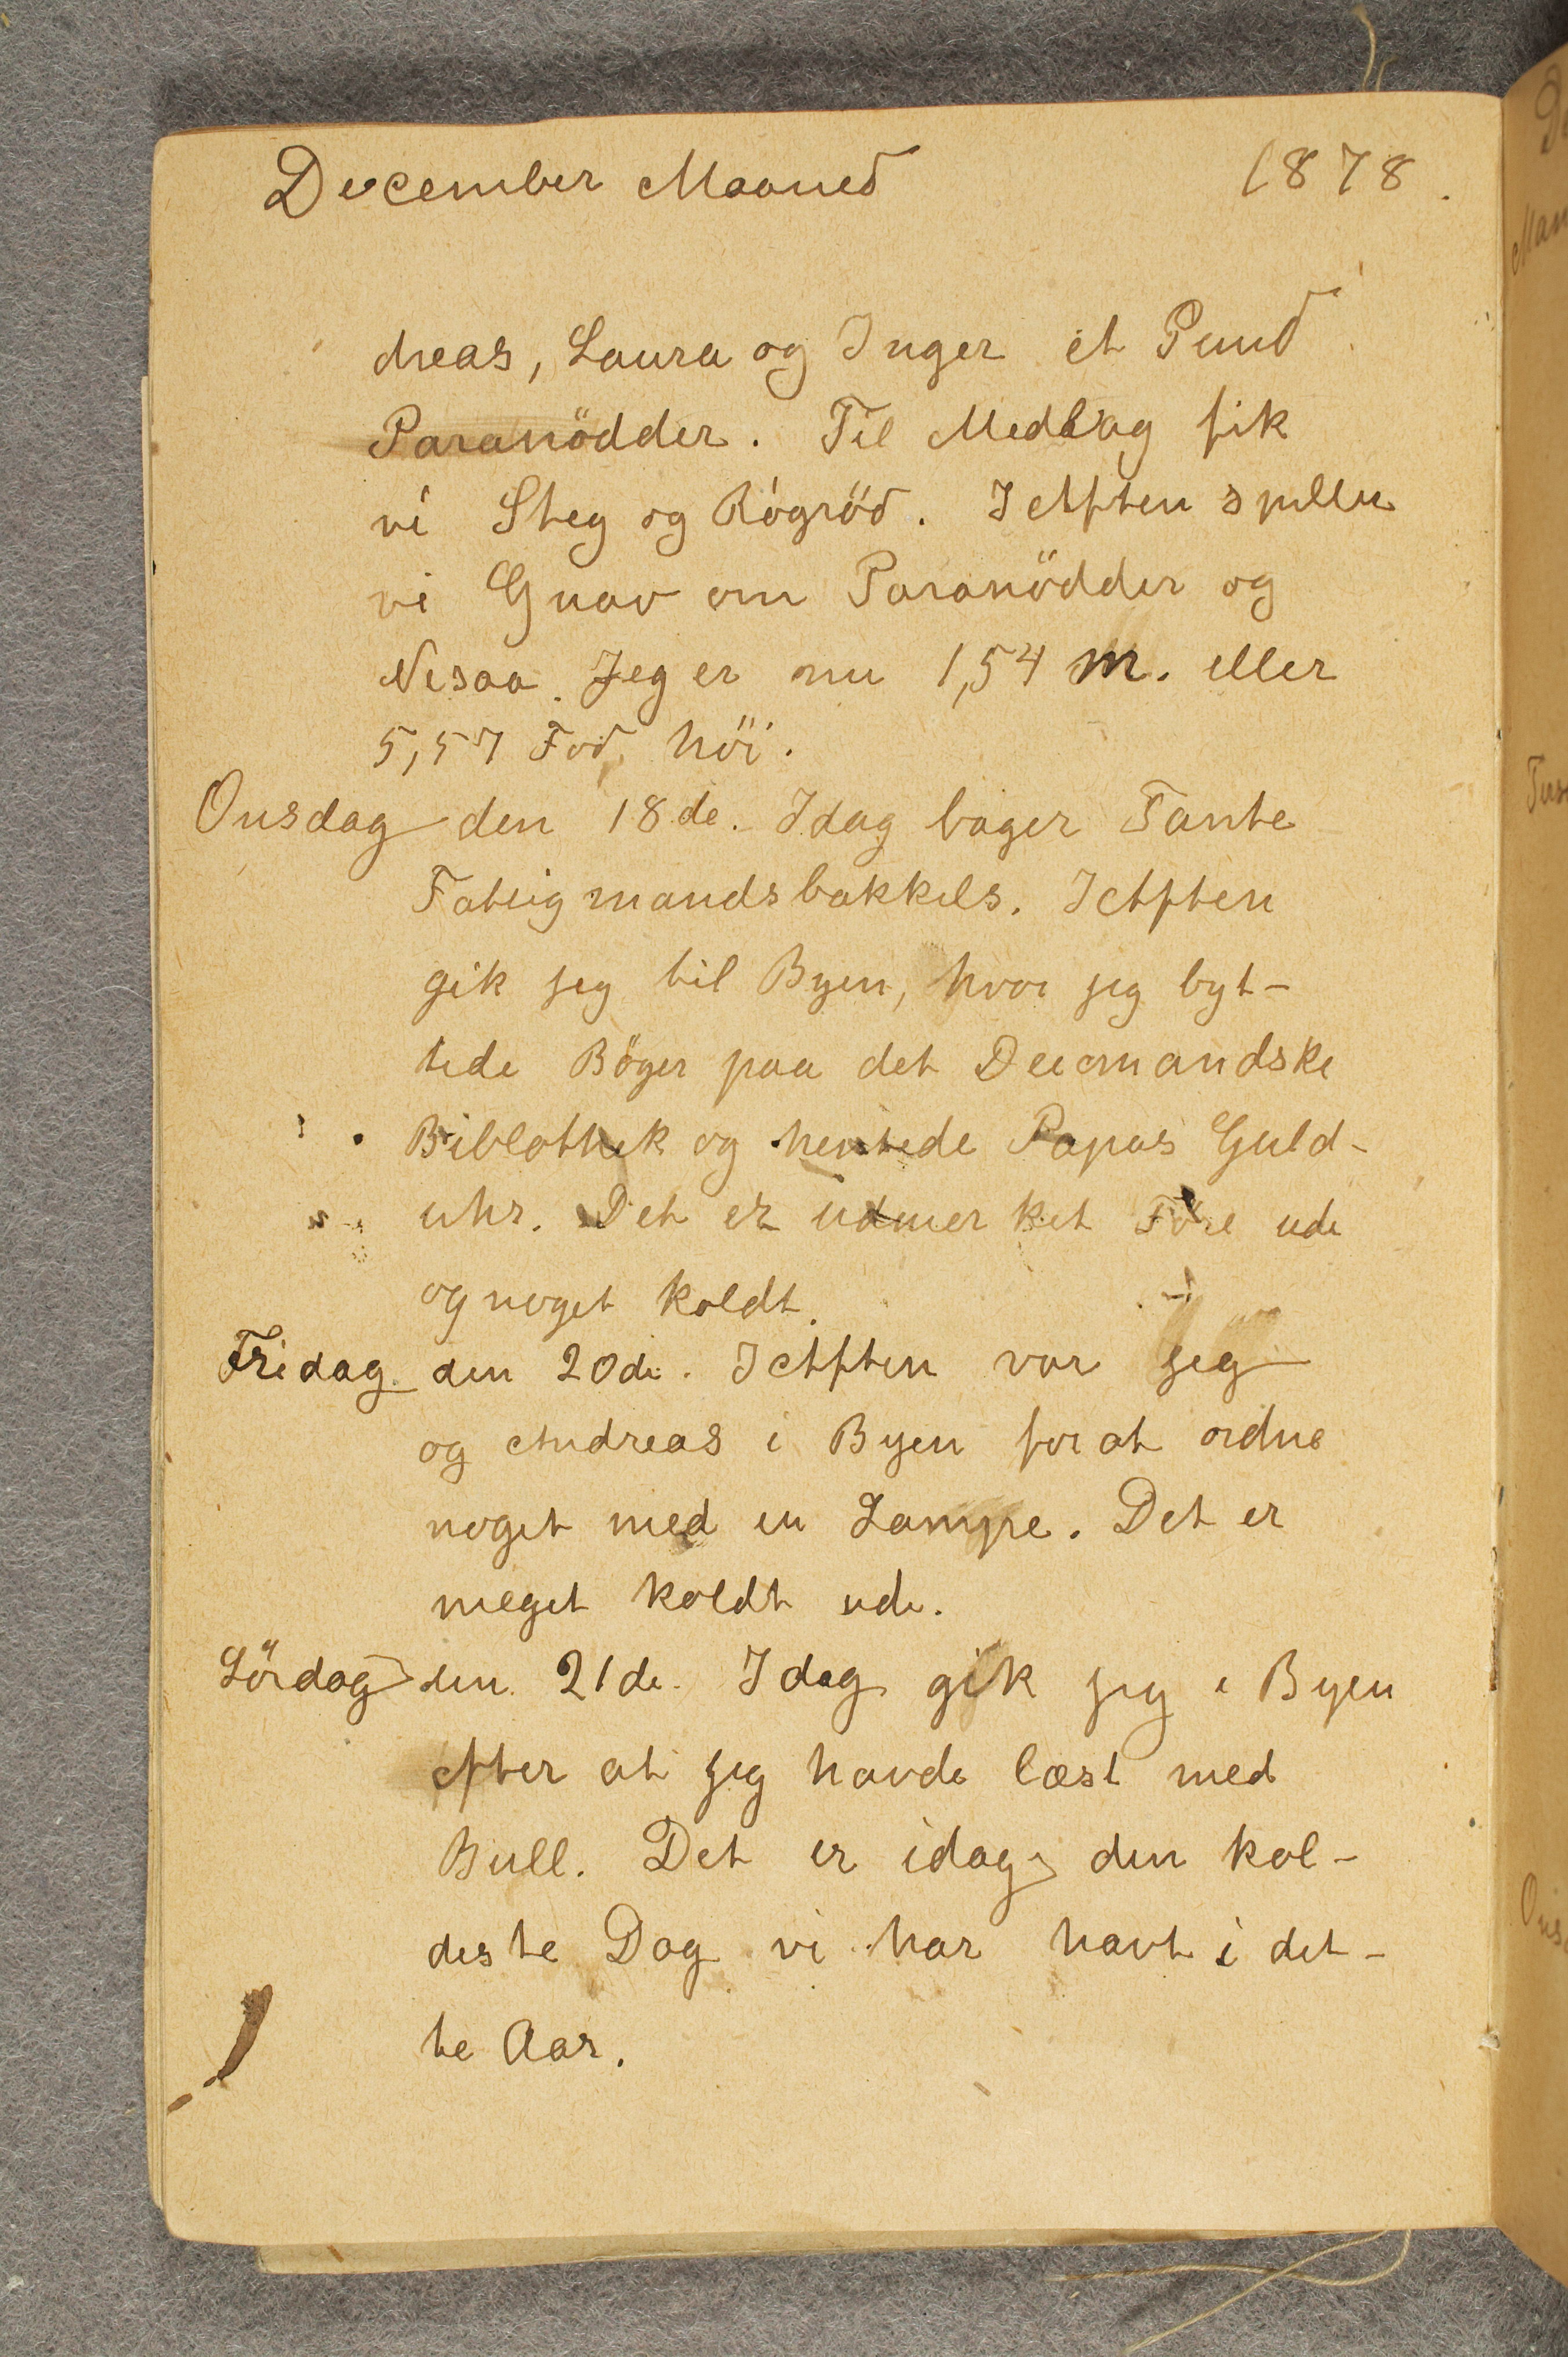 December Maaned 1878.
dreas, Laura og Inger et Pund
Paranödder. Til Meddag fik
vi Steg og Rögröd. I Aften spiller
vi Gnav om Paranödder og
Nisaa. Jeg er nu 1,54 m. eller
5,57 Fod, höi.
Onsdag den 18de. Idag bager Tante
Fattigmandsbakkels. I Aften
gik jeg til Byen, hvor jeg byt-
tede Böger paa det Deicmandske
Biblothek og hentede Papas Guld-
uhr. Det er udmerket Före ude
og noget koldt.
Fridag den 20de. I Aften var jeg
og Andreas i Byen for at ordne
noget med en Lampe. Det er
meget koldt ude.
Lördag den 21de. Idag gik jeg i Byen
efter at jeg havde læst med
Bull. Det er idag den kol-
deste Dag vi har havt i det-
te Aar.